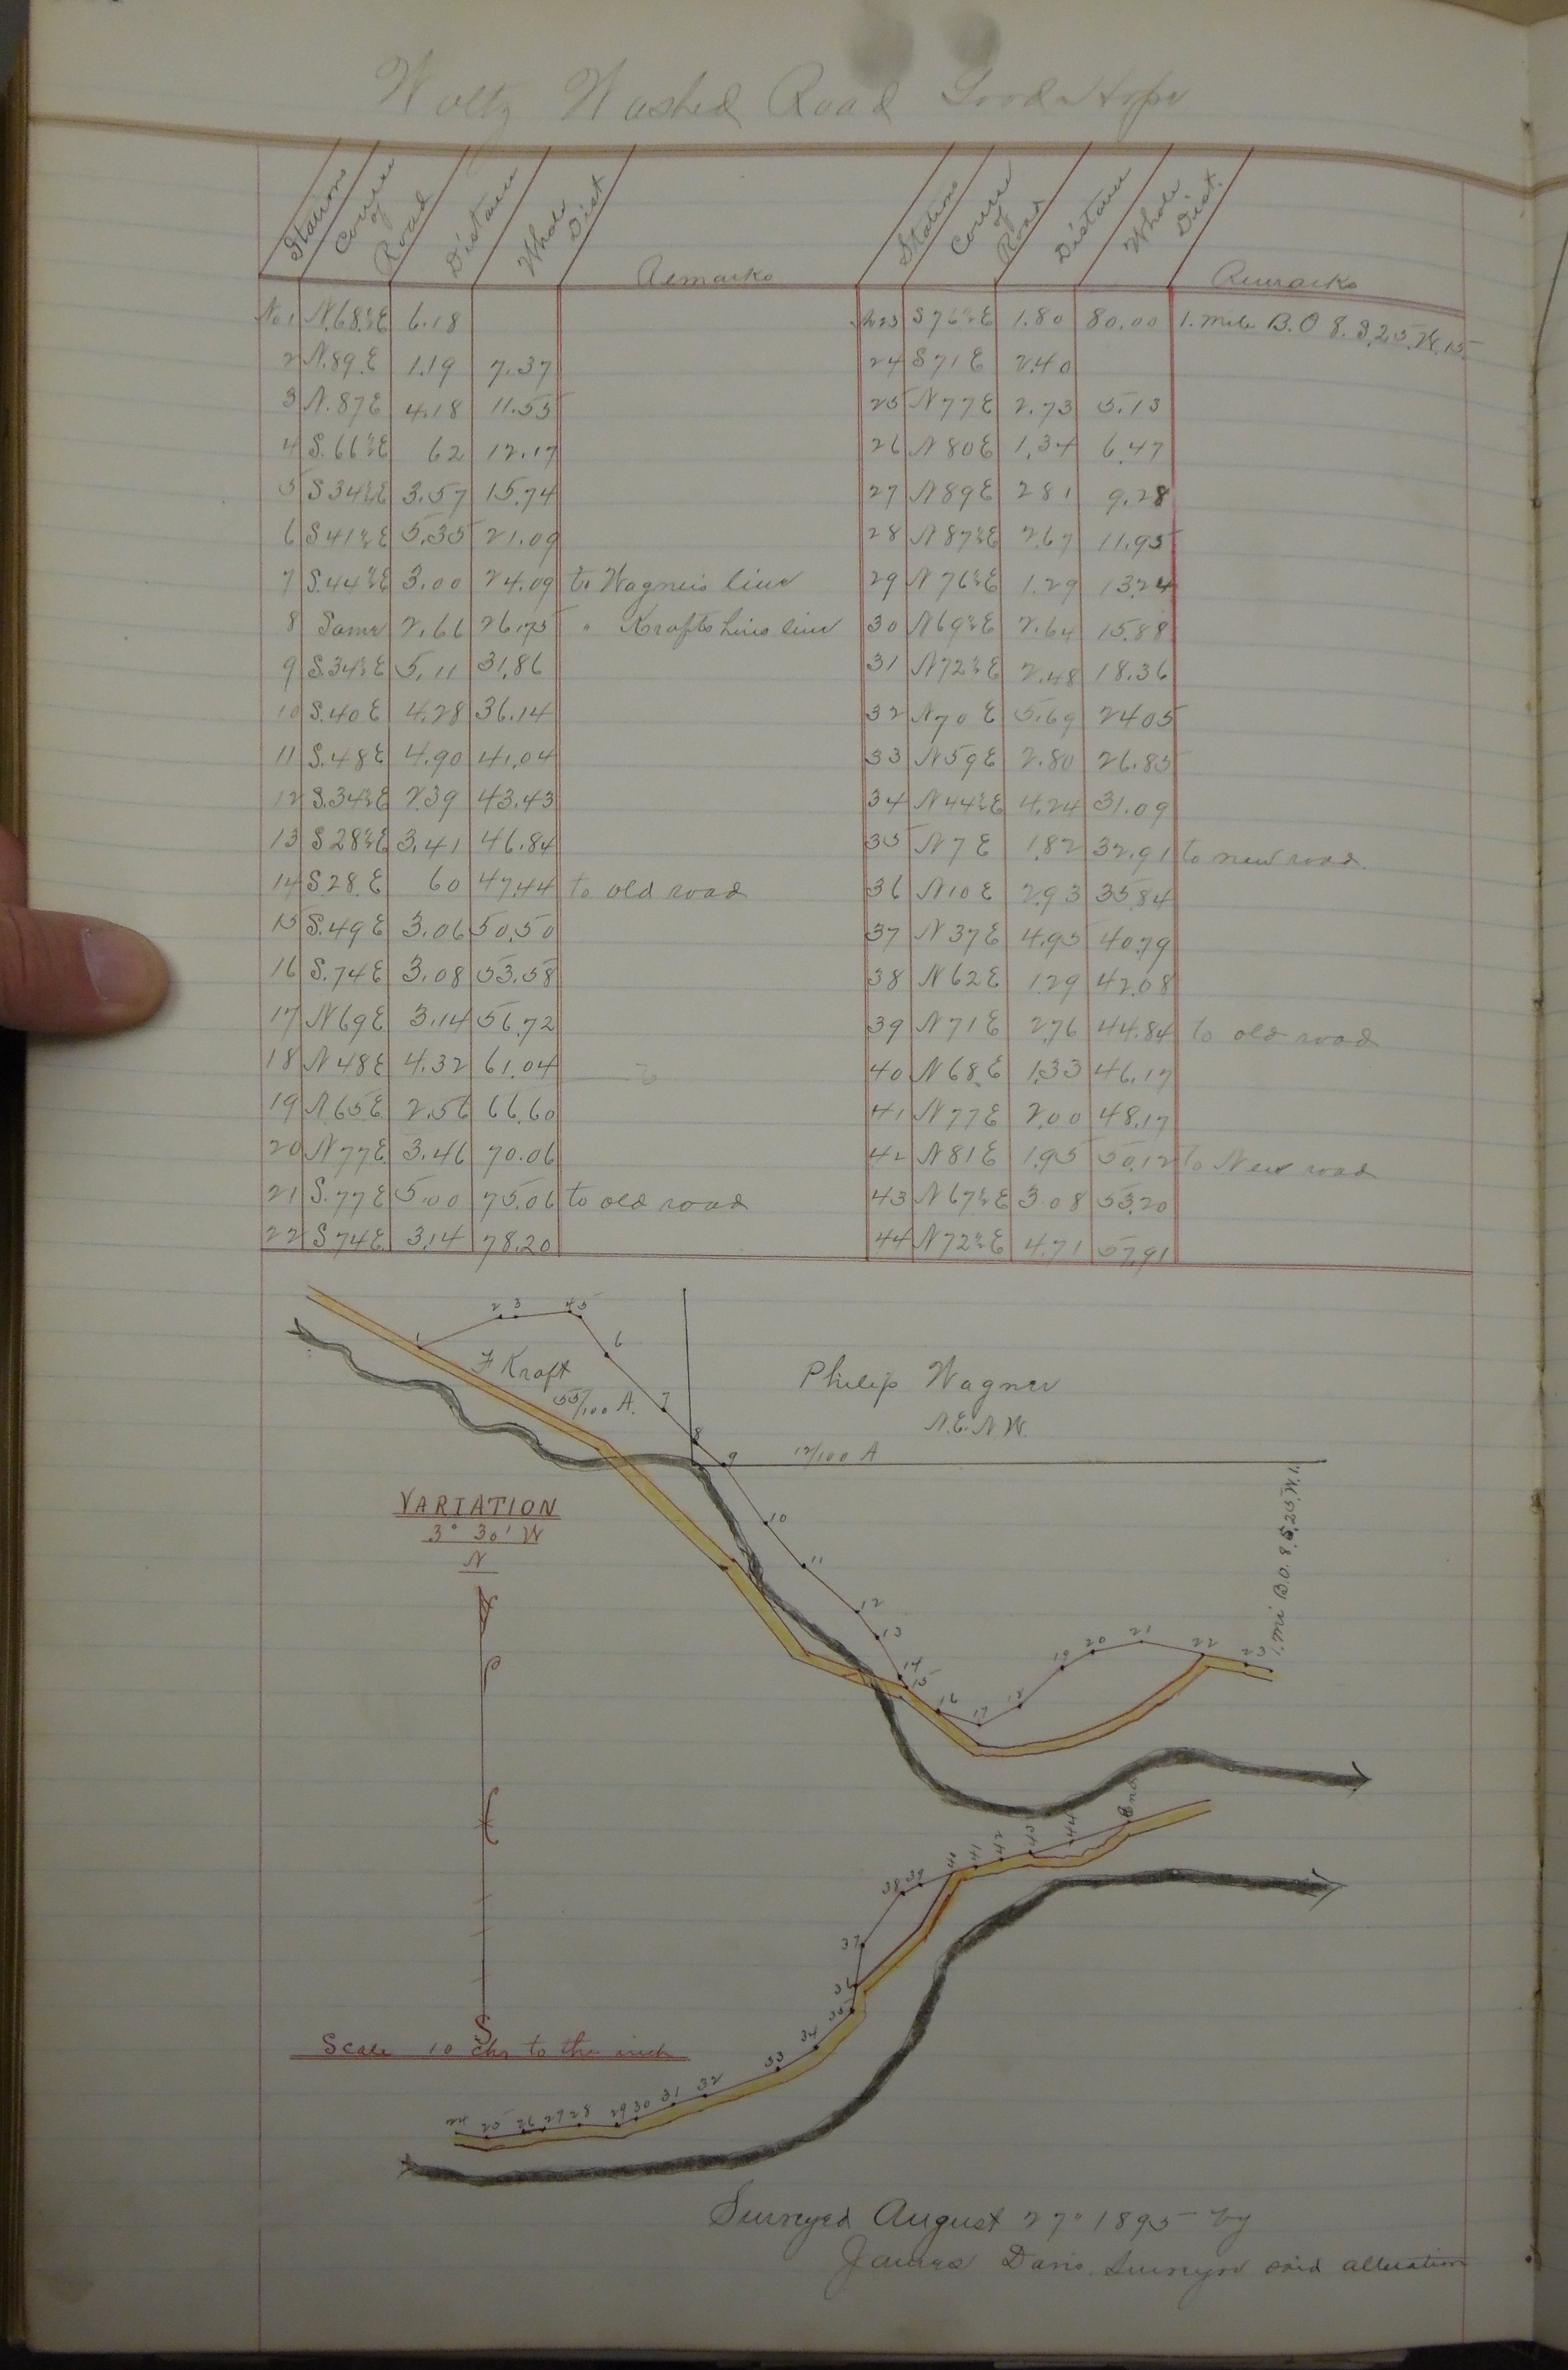 Woltz Washed Road Good Hope
Stations Course of Road Distance Whole Dist Remarks
No 1 N.68½E 6.18
2 N.89.E 1.19 7.37
3 N.87E 4.18 11.55
4 S.66½E 62 12.17
5 S34½E 3.57 15.74
6 S41½E 5.35 21.09
7 S.44½E 3.00 24.09 to Wagners line
8 Same 2.66 26.75 " Krafts line
9 S.34½E 5.11 31.86
10 S.40E 4.28 36.14
11 S.48E 4.90 41.04
12 S.34½E 2.39 43.43
13 S28½E 3.41 46.84
14 S28.E 60 47.44 to old road
15 S.49E 3.06 50.50
16 S.74E 3.08 53.58
17 N69E 3.14 56.72
18 N48E 4.32 61.04
19 N.65E 2.56 66.60
20 N77E 3.46 70.06
21 S.77E 5.00 75.06 to old road
22 S74E 3.14 78.20
Stations Course of Road Distance Whole Dist. Remarks
No 23 S76½E 1.80 80.00 1. mile B.O 8. S,25.W.15
24 S71E 2.40
25 N77E 2.73 5.13
26 N80E 1.34 6.47
27 N89E 281 9.28
28 N87½E 2.67 11.95
29 N76½E 1.29 13.24
30 N69½E 2.64 15.88
31 N72½E 2.48 18.36
32 N70E 5.69 24 05
33 N59E 2.80 26.85
34 N44½E 4.24 31.09
35 N7E 1.82 32.91 to new road
36 N10E 2.93 35.84
37 N37E 4.95 40.79
38 N62E 1.29 42.08
39 N71E 2.76 44.84 to old road
40 N68.E 1.33 46.17
41 N77E 2.00 48.17
42 N81E 1.95 50.12 to New road
43 N67½E 3.08 53.20
44 N72½E 4.71 57.91
1 2 3 4 5 6 7 8 9 10 11 12 13 14 15 16 17 18 19 20 21 22 23
F Kraft
55/100 A.
Philip Wagner
N.E.N.W.
12/100 A
1. mi B.O. 8.S,25.W.1.
VARIATION
3° 30' W
N
S
Scale 10 chs to the inch
24 25 26 27 28 29 30 31 32 33 34 35 36 37 38 39 40 41 42 43 44 End
Surveyed August 27" 1895 by
James Davis. Surveyor said alteration